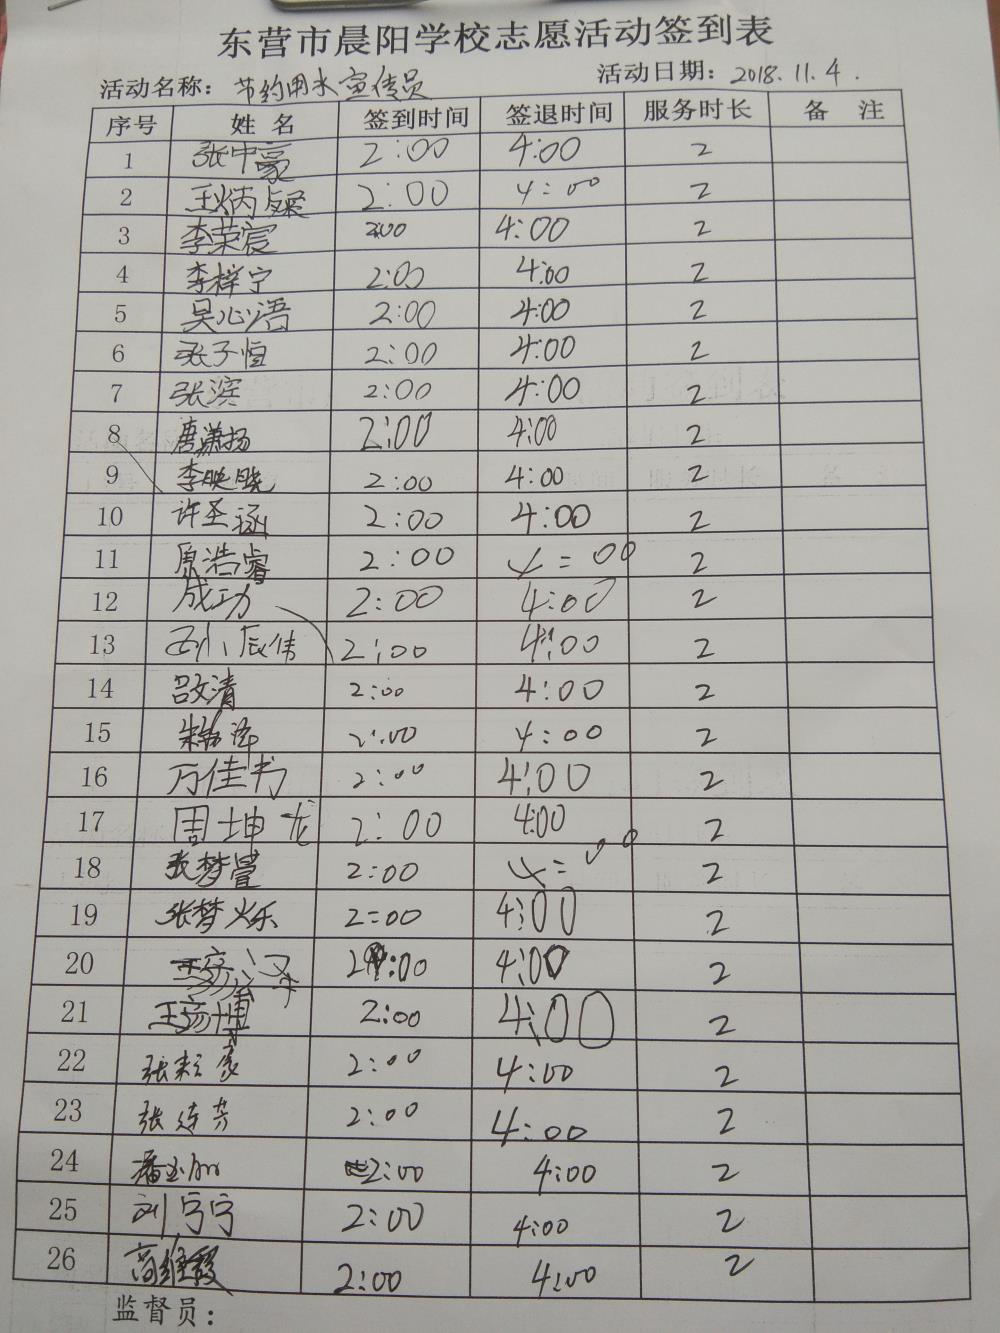 东营市晨阳学校志愿活动签到表
活动名称：节约用水宣传员 活动日期：2018.11.4.
序号 姓名 签到时间 签退时间 服务时长 备注
1 张中豪 2:00 4:00 2
2 王炳 2:00 4:00 2
3 李荣宸 2:00 4:00 2
4 李梓宁 2:00 4:00 2
5 吴心语 2:00 4:00 2
6 张子恒 2:00 4:00 2
7 张滨 2:00 4:00 2
8 唐潇扬 2:00 4:00 2
9 李映晓 2:00 4:00 2
10 许圣涵 2:00 4:00 2
11 原浩睿 2:00 4:00 2
12 成功 2:00 4:00 2
13 刘辰伟 2:00 4:00 2
14 吕文清 2:00 4:00 2
15 2:00 4:00 2
16 万佳书 2:00 4:00 2
17 周坤龙 2:00 4:00 2
18 张梦萱 2:00 4:00 2
19 张梦烁 2:00 4:00 2
20 2:00 4:00 2
21 王彦博 2:00 4:00 2
22 张家 2:00 4:00 2
23 张连芳 2:00 4:00 2
24 2:00 4:00 2
25 刘宁宁 2:00 4:00 2
26 高维霞 2:00 4:00 2
监督员：